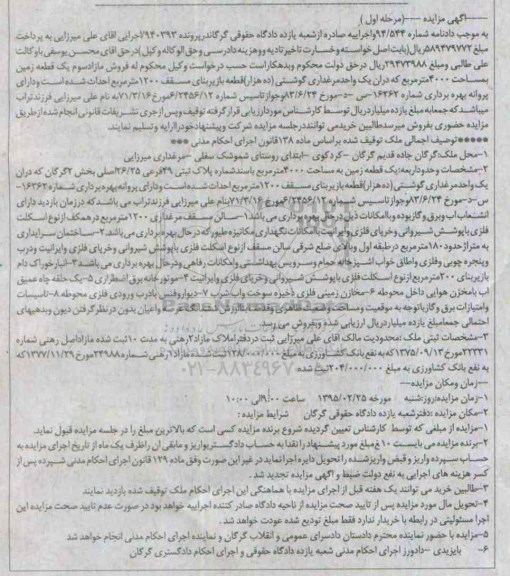 -----آگهی مزایده ----(مرحله اول)
به موجب دادنامه شماره ۹۴/۵۴۴ واجراییه صادره ازشعبه یازده دادگاه حقوقی گرگاندرپرونده ۹۴۰۳۹۳/اجرایی اقای علی میرزایی به پرداخت
مبلغ ۵۸۹۴۷۹۷۷۲ریال(بابت اصل خواسته و خسارت تاخیر تادیه ووهزینه دادرسی و حق الوکاله وکیل)درحق اقای محسن یوسفی باوکالت
علی طالبی ومبلغ ۲۹۴۷۳۹۸۸ ریال درحق دولت محکوم ویدهکاراست حسب درخواست وکیل محکوم له فروش مازادسوم یک قطعه زمین
بمساحت ۴۰۰۰مترمربع که دران یک واحدمرغداری گوشتی (ده هزار)قطعه بازیربنای مسقف ۱۲۰۰مترمربع احداث شده است ودارای
پروانه بهره برداری شماره ۱۶۳۶۲-س-د-مورخ ۸۳/۶/۲۴وجوازتاسیس شماره ۶/۲۴۵۶/۱۲مورخ۷۱/۳/۱۶به نام علی میرزایی فرزندتراب
میباشد که جمعابه مبلغ یازده میلیارد ریال توسط کارشناس موردارزیابی قرار گرفته توقیف وپس ازجری تشریفات قانونی انجام شده ازطریق
مزایده حضوری بفروش میرسدطالبین خریدمی توانندرجلسه مزایده شرکت وپیشنهادخودراارایه وتسلیم نمایند.
*****توصیف اجمالی ملک توقیف شده براساس ماده ۱۳۸قانون اجرای احکام مدنی ***
۱-محل ملک:گرگان جاده قدیم گرگان -کردکوی -ابتدای روستای شموشک سفلی -مرغداری میرزایی
۲-مشخصات وحدودا ربعه:یک قطعه زمین به مساحت ۴۰۰۰مترمربع باسندشماره پلاک ثبتی ۴۹فرعی ۲۶/۲۵اصلی بخش ۲گرگان که دران
یک واحدمرغداری گوشتی(ده هزار)قطعه بازیربنای مسقف ۱۲۰۰مترمربع احداث شده است ودارای پروانه بهره برداری شماره ۱۶۳۶۲-
س-د-مورخ ۸۳/۶/۲۴وجوازتاسیس شماره ۶/۲۴۵۶/۱۲مورخ۷۱/۳/۱۶بنام علی میرزایی فرزندتراب می باشد که درزمان بازدید دارای
انشعاب اب وبرق وگازبوده وباامکانات ذیل درحال بهره برداری می باشد ۱-سالن مسقف مرغداری ۱۲۰۰مترمربع درهمکف ازنوع اسکلت
فلزی باپوشش شیروانی وخرپای فلزی وایرانیت باامکانات نگهداری مکانیزه طیورکه درحال بهره برداری می باشد ۲-ساختمان سرایداری
به متراژحدود۱۸۰مترمربع درطبقه اول وبالای ضلع شرقی سالن مسقف ازنوع اسکلت فلزی باپوشش شیروانی وخرپای فلزی وایرانیت ودرب
وپنجره چوبی وفلزی واطاق خواب اشپزخانه حمام وسرویس بهداشتی وامکانات رفاهی ودرحال بهره برداری می باشد ۳-انبارخوراک دام
بازیربنای ۲۰۰مترمربع ازنوع اسکلت فلزی باپوشش شیروانی وخرپای فلزی وایرانیت ۴-موتورخانه برق اضطراری ۵-یک حلقه چاه عمیق
اب بامخزن هوایی داخل محوطه ۶-مخازن زمینی فلزی ذخیره سوخت واب شرب ۷-دیواروفنس بادرب ورودی فلزی محوطه ۸-تاسیسات
وامتیازات برق و گازباتوجه به موقعیت ومساحت وضعیت ظاهری وقدمت
احتمالی جمعامبلغ یازده میلیاردریال ارزیابی شده وبفروش می رسد.
۳-مشخصات ثبتی ملک :محدودیت مالک اقای علی میرزایی ثبت دردفتراملاک مازاد۲رهنی به مدت ۱۰ثبت شده مازاداصل رهنی شماره
۲۲۳۳۱مورخ ۱۳۷۵/۰۹/۱۳که به نفع بانک کشاورزی به مبلغ ۱۲۸/۰۰۰/۰۰۰ثبت شده مازاد۱رهنی شماره ۲۴۹۸۸مورخ ۱۳۷۷/۱۱/۲۹که
به نفع بانک کشاورزی به مبلغ ۲۰۴/۰۰۰/۰۰۰ثبت شده.
---زمان ومکان مزایده---
۱-زمان مزایده:روزشنبه مورخه ۱۳۹۵/۰۲/۲۵ ساعت ۹:۰۰ الی ۱۰:۰۰
۲-مکان مزایده :دفترشعبه یازده دادگاه حقوقی گرگان شرایط مزایده:
۱-مزایده از مبلغی که توسط کارشناس تعیین گردیده شروع برنده مزایده کسی است که بالاترین مبلغ را در جلسه مزایده قبول نماید.
۲-برنده مزایده می بایست ۱۰٪مبلغ مورد پیشنهاد را نقدا به حساب دادگستری واریز و مابقی ان راظرف یک ماه از تاریخ اجرای مزایده به
حساب سپرده واریز و قبض واریز شده را تحویل دایره اجرا نماید در غیر این صورت وفق ماده ۱۲۹ قانون اجرای احکام مدنی شپرده پس از
کسر هزینه های اجرایی به نفع دولت ضبط و اگهی مزایده تجدید شد.
۳-طالبین خرید می توانند یک هفته قبل از اجرای مزایده با هماهنگی این اجرای احکام ملک توقیف شده بازدید نمایند
۴-تحویل مال مورد مزایده پس از تایید صحت مزایده از ناحیه دادگاه صادر کننده اجراییه خواهد بود در صورت عدم تایید صحت مزایده این
اجرا مسئولیتی در رابطه با خریدار ندارد فقط مبلغ تودیع شده عودت خواهد شد.
۵-مزایده با حضور نماینده محترم دادستان دادسرای عمومی و انقلاب گرگان و نماینده اجرای احکام مدنی انجام خواهد شد
۶- بایزیدی -دادورز اجرای احکام مدنی شعبه یازده دادگاه حقوقی و اجرای احکام دادگستری گرگان
۰۲۱-۸۸۳۴۹۶۷